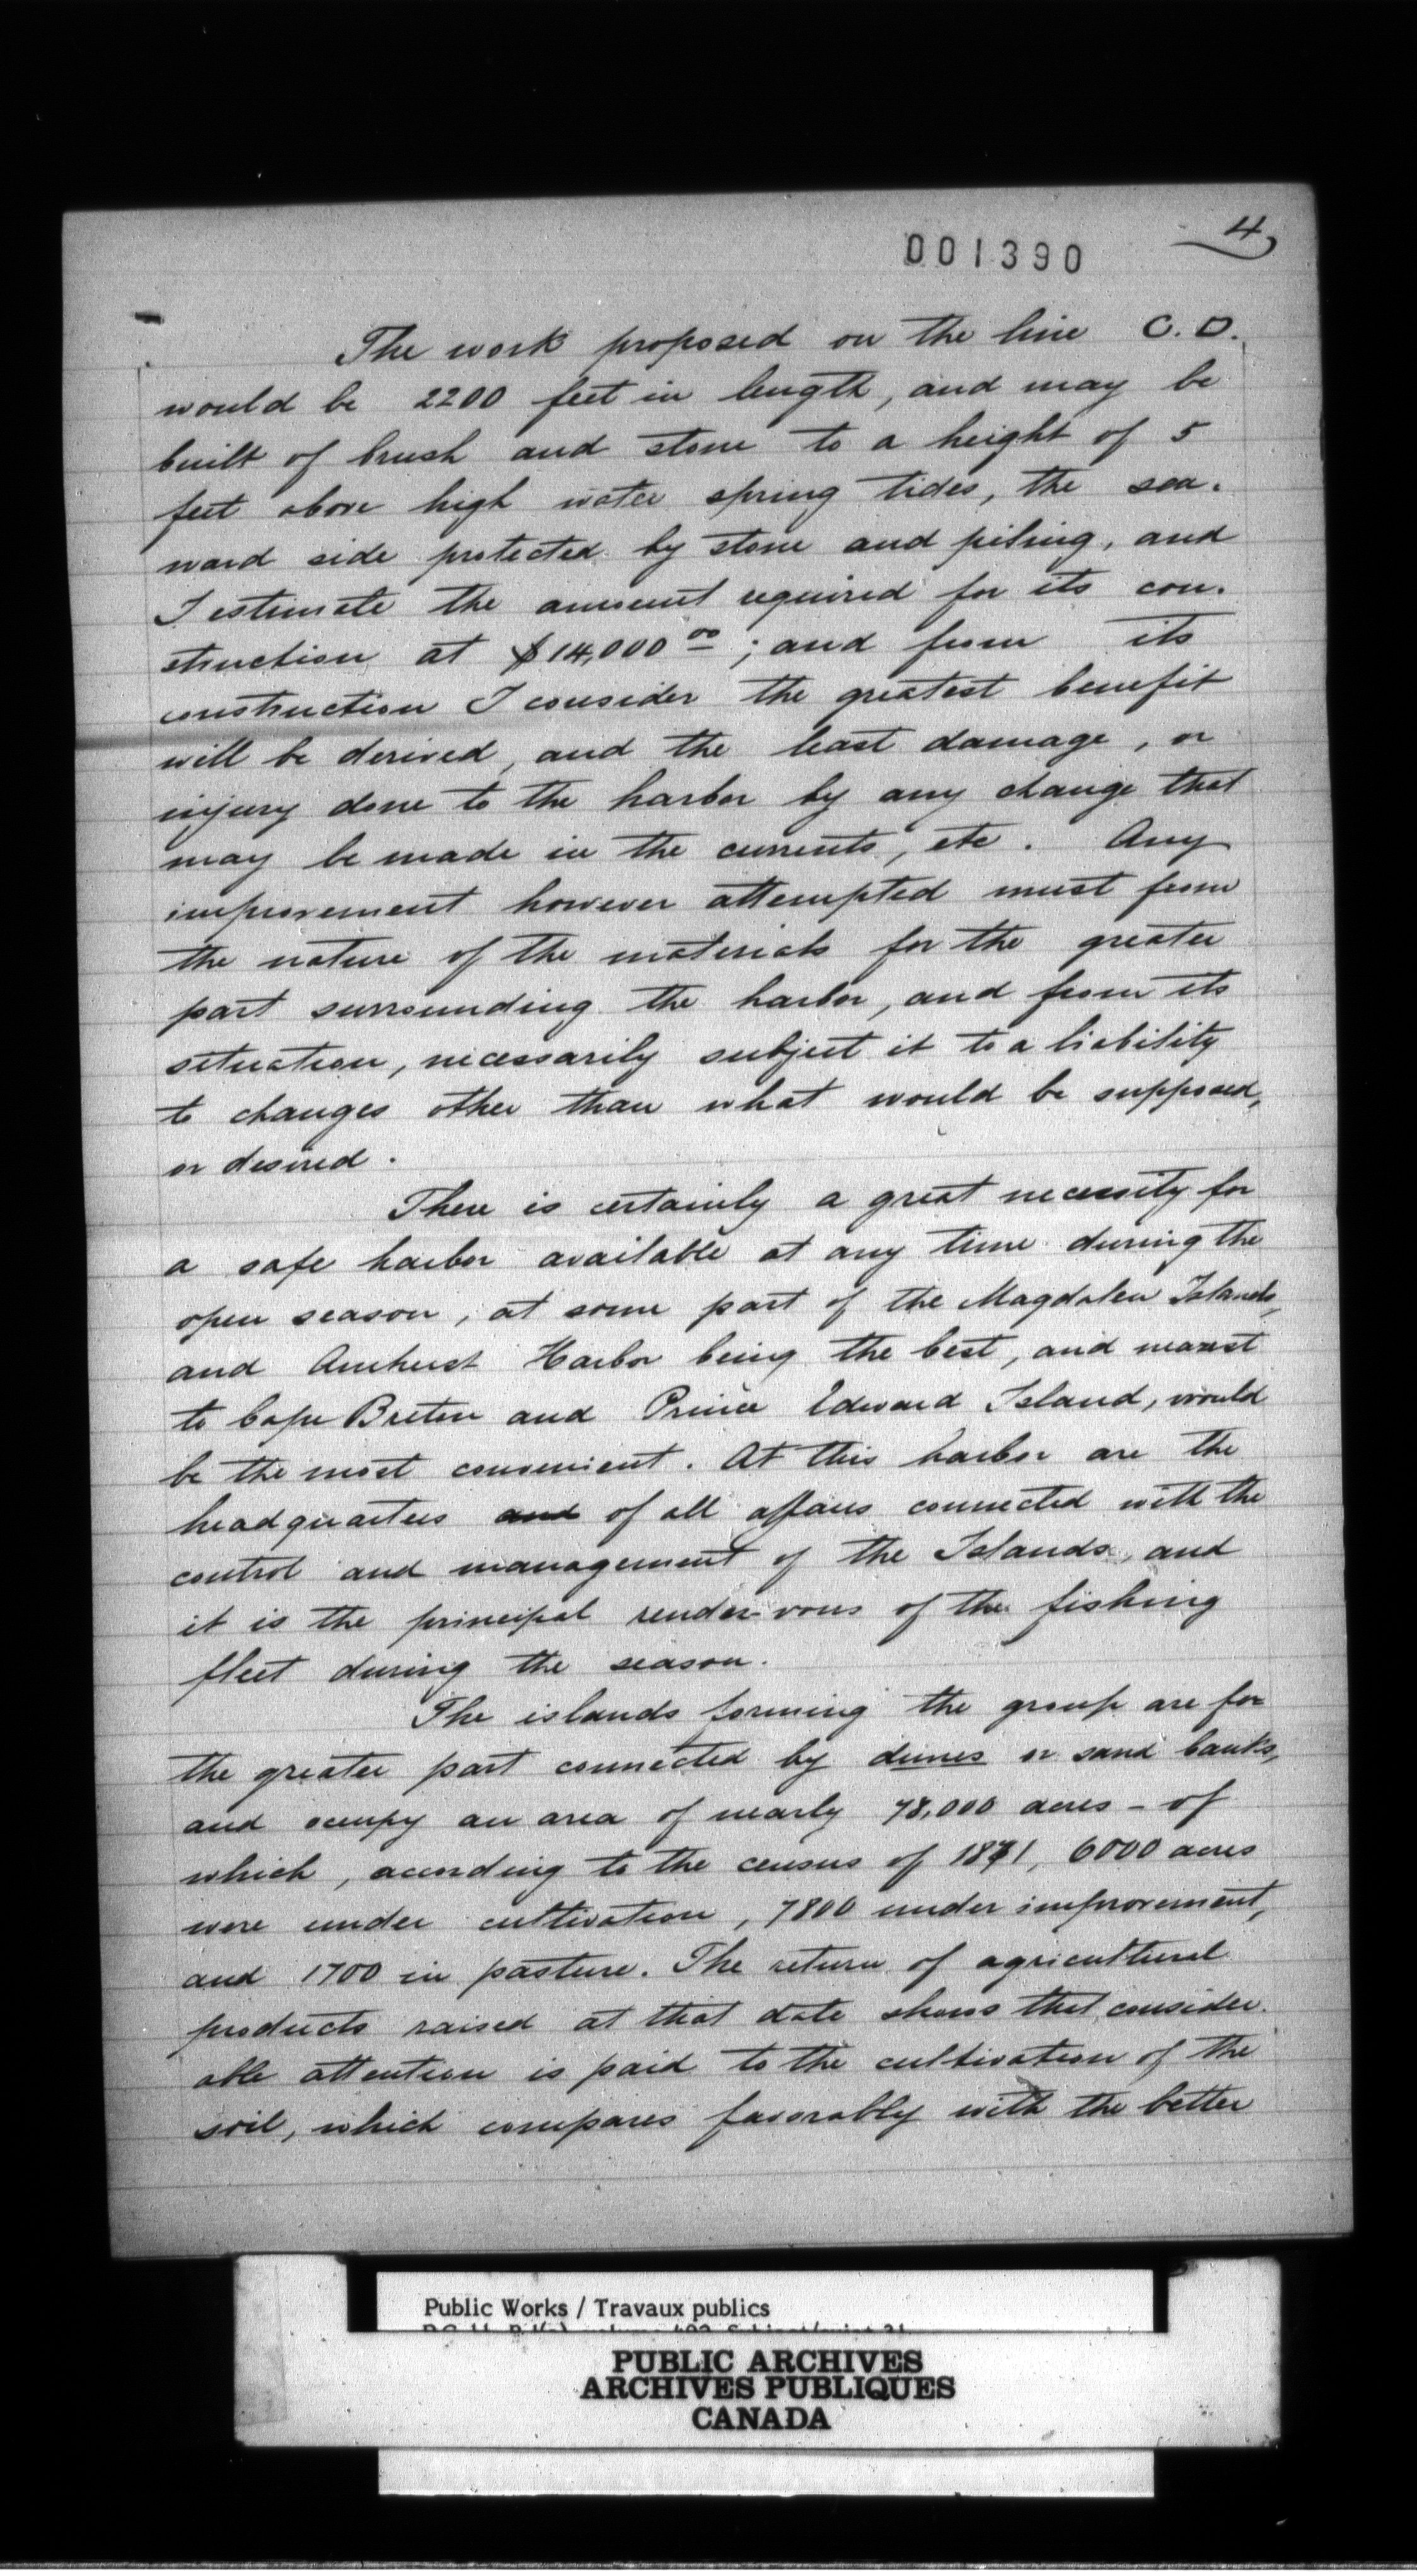 4
001390
The work proposed on the line C.D.
would be 2200 feet in length, and may be
built of brush and stone to a height of 5
feet above high water spring tides, the sea-
ward side protected by stone and piling, and
I estimate the amount required for its con-
struction at $14,000 00; and from its
construction I consider the greatest benefit
will be derived, and the least damage, or
injury done to the harbor by any change that
may be made in the currents, etc. Any
improvement however attempted must from
the nature of the materials for the greater
part surrounding the harbor, and from its
situation, necessarily subject it to a liability
to changes other than what would be supposed,
or desired.
There is certainly a great necessity for
a safe harbor available at any time during the
open season, at some part of the Magdalen Islands,
and Amherst Harbor being the best, and nearest
to Cape Breton and Prince Edward Island, would
be the most convenient. At this harbor are the
headquarters and of all affairs connected with the
control and management of the Islands, and
it is the principal render-vous of the fishing
fleet during the season.
The islands forming the group are for
the greater part connected by dunes or sand banks,
and occupy an area of nearly 78,000 acres - of
which, according to the census of 1871, 6000 acres
were under cultivation, 7800 under improvement,
and 1700 in pasture. The return of agricultural
products raised at that date shows that consider-
able attention is paid to the cultivation of the
soil, which compares favorably with the better
Public Works / Travaux publics
PUBLIC ARCHIVES
ARCHIVES PUBLIQUES
CANADA